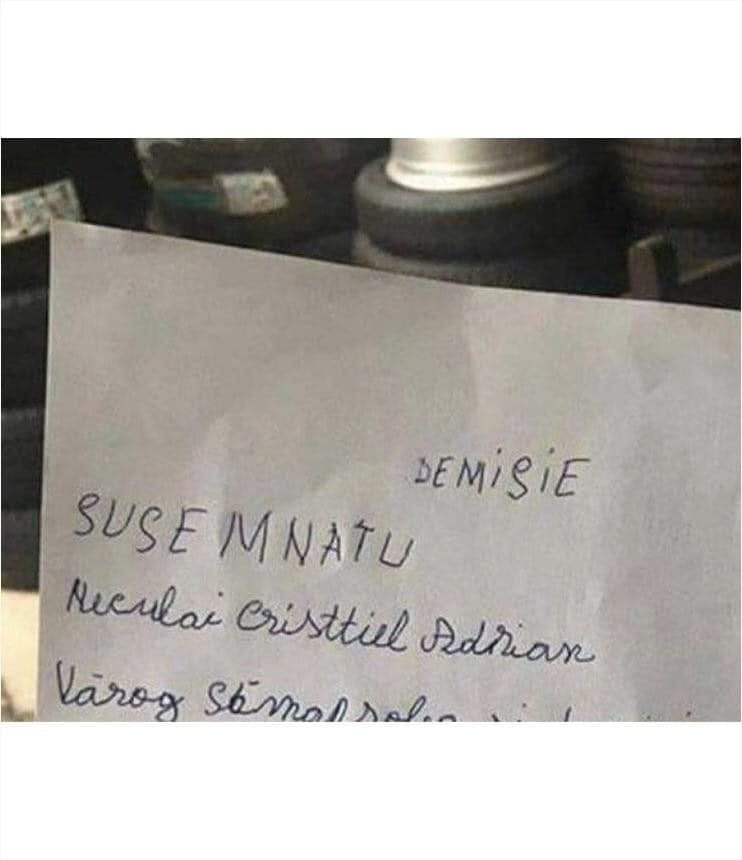 DEMISIE
SUSEMNATU
Neculai Cristtiel Adrian
Vărog